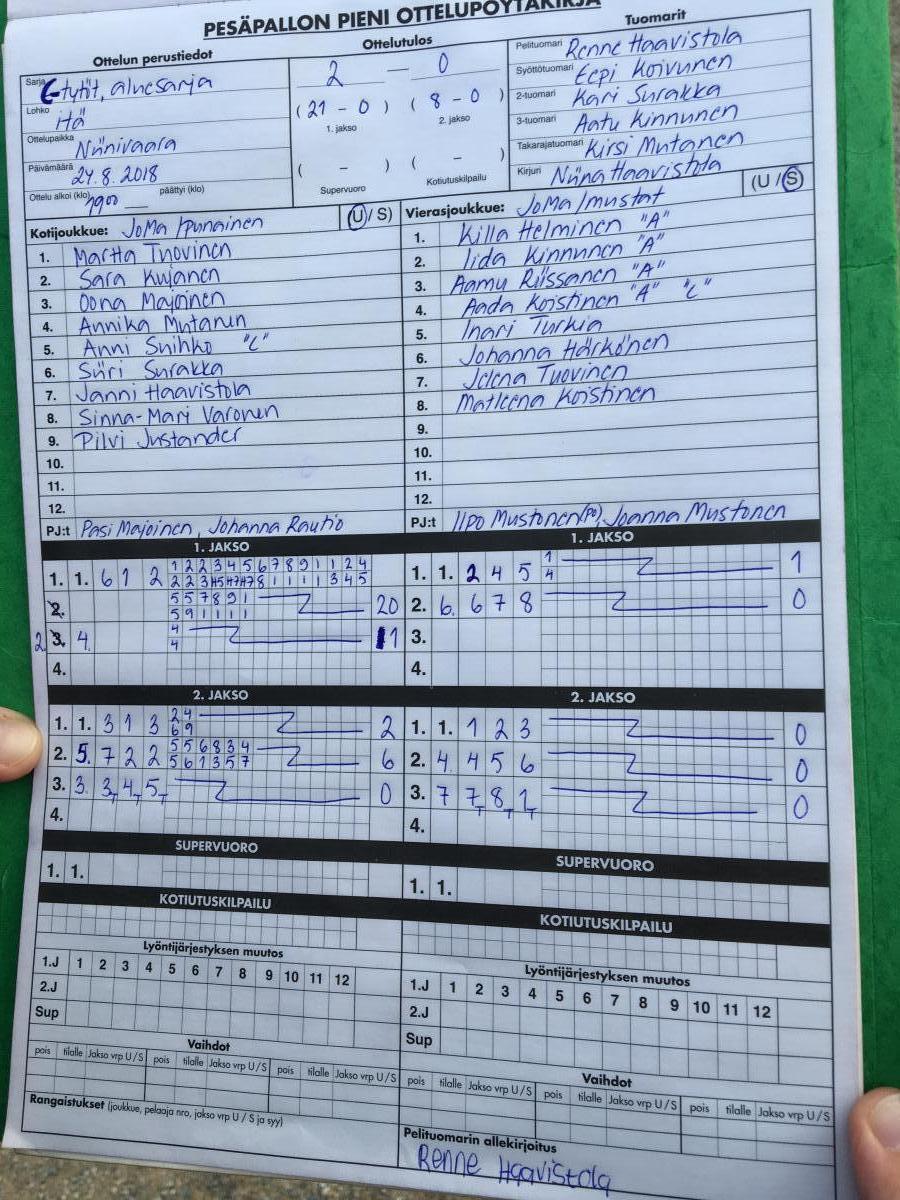 PESÄPALLON PIENI OTTELUPÖYTÄKIRJA
Ottelun perustiedot
Sarja C-tytöt, aluesarja
Lohko itä
Ottelupaikka Niinivaara
Päivämäärä 24.8.2018
Ottelu alkoi (klo) 1900 päättyi (klo)
Ottelutulos
2 — 0
(21 - 0) (8 - 0)
1. jakso 2. jakso
( - ) ( - )
Supervuoro Kotiutuskilpailu
Tuomarit
Pelituomari Renne Haavistola
Syöttötuomari Eepi Koivunen
2-tuomari Kari Surakka
3-tuomari Aatu Kinnunen
Takarajatuomari Kirsi Mutanen
Kirjuri Niina Haavistola
Kotijoukkue: JoMa /punainen (U / S)
1. Martta Tuovinen
2. Sara Kujanen
3. Oona Majoinen
4. Annika Mutanen
5. Anni Suihko "C"
6. Siiri Surakka
7. Janni Haavistola
8. Sinna-Mari Varonen
9. Pilvi Justander
10.
11.
12.
PJ:t Pasi Majoinen, Johanna Rautio
Vierasjoukkue: JoMa /mustat (U / S)
1. Killa Helminen "A"
2. Iida Kinnunen "A"
3. Aamu Riissanen "A"
4. Aada Koistinen "A" "C"
5. Inari Turkia
6. Johanna Härkönen
7. Jelena Tuovinen
8. Matleena Koistinen
9.
10.
11.
12.
PJ:t Ilpo Mustonen (po), Joanna Mustonen
1. JAKSO
1. 1. 6 1 2
2. 20
3. 4.
4.
1. JAKSO
1. 1. 2 4 5 1 4 1
2. 6. 6 7 8 0
3.
4.
2. JAKSO
1. 1. 3 1 3 2 4 6 9 2
2. 5. 7 2 2 5 5 6 8 3 4 6
5 6 1 3 5 7
3. 3. 3T 4T 5T 0
4.
2. JAKSO
1. 1. 1 2 3 0
2. 4. 4 5 6 0
3. 7 7T 8T 1T 0
4.
SUPERVUORO
1. 1.
SUPERVUORO
1. 1.
KOTIUTUSKILPAILU
KOTIUTUSKILPAILU
Lyöntijärjestyksen muutos
1.J 1 2 3 4 5 6 7 8 9 10 11 12
2.J
Sup
Lyöntijärjestyksen muutos
1.J 1 2 3 4 5 6 7 8 9 10 11 12
2.J
Sup
Vaihdot
pois tilalle Jakso vrp U / S pois tilalle Jakso vrp U / S pois tilalle Jakso vrp U / S
Vaihdot
pois tilalle Jakso vrp U / S pois tilalle Jakso vrp U / S pois tilalle Jakso vrp U / S
Rangaistukset (joukkue, pelaaja nro, jakso vrp U / S ja syy)
Pelituomarin allekirjoitus
Renne Haavistola